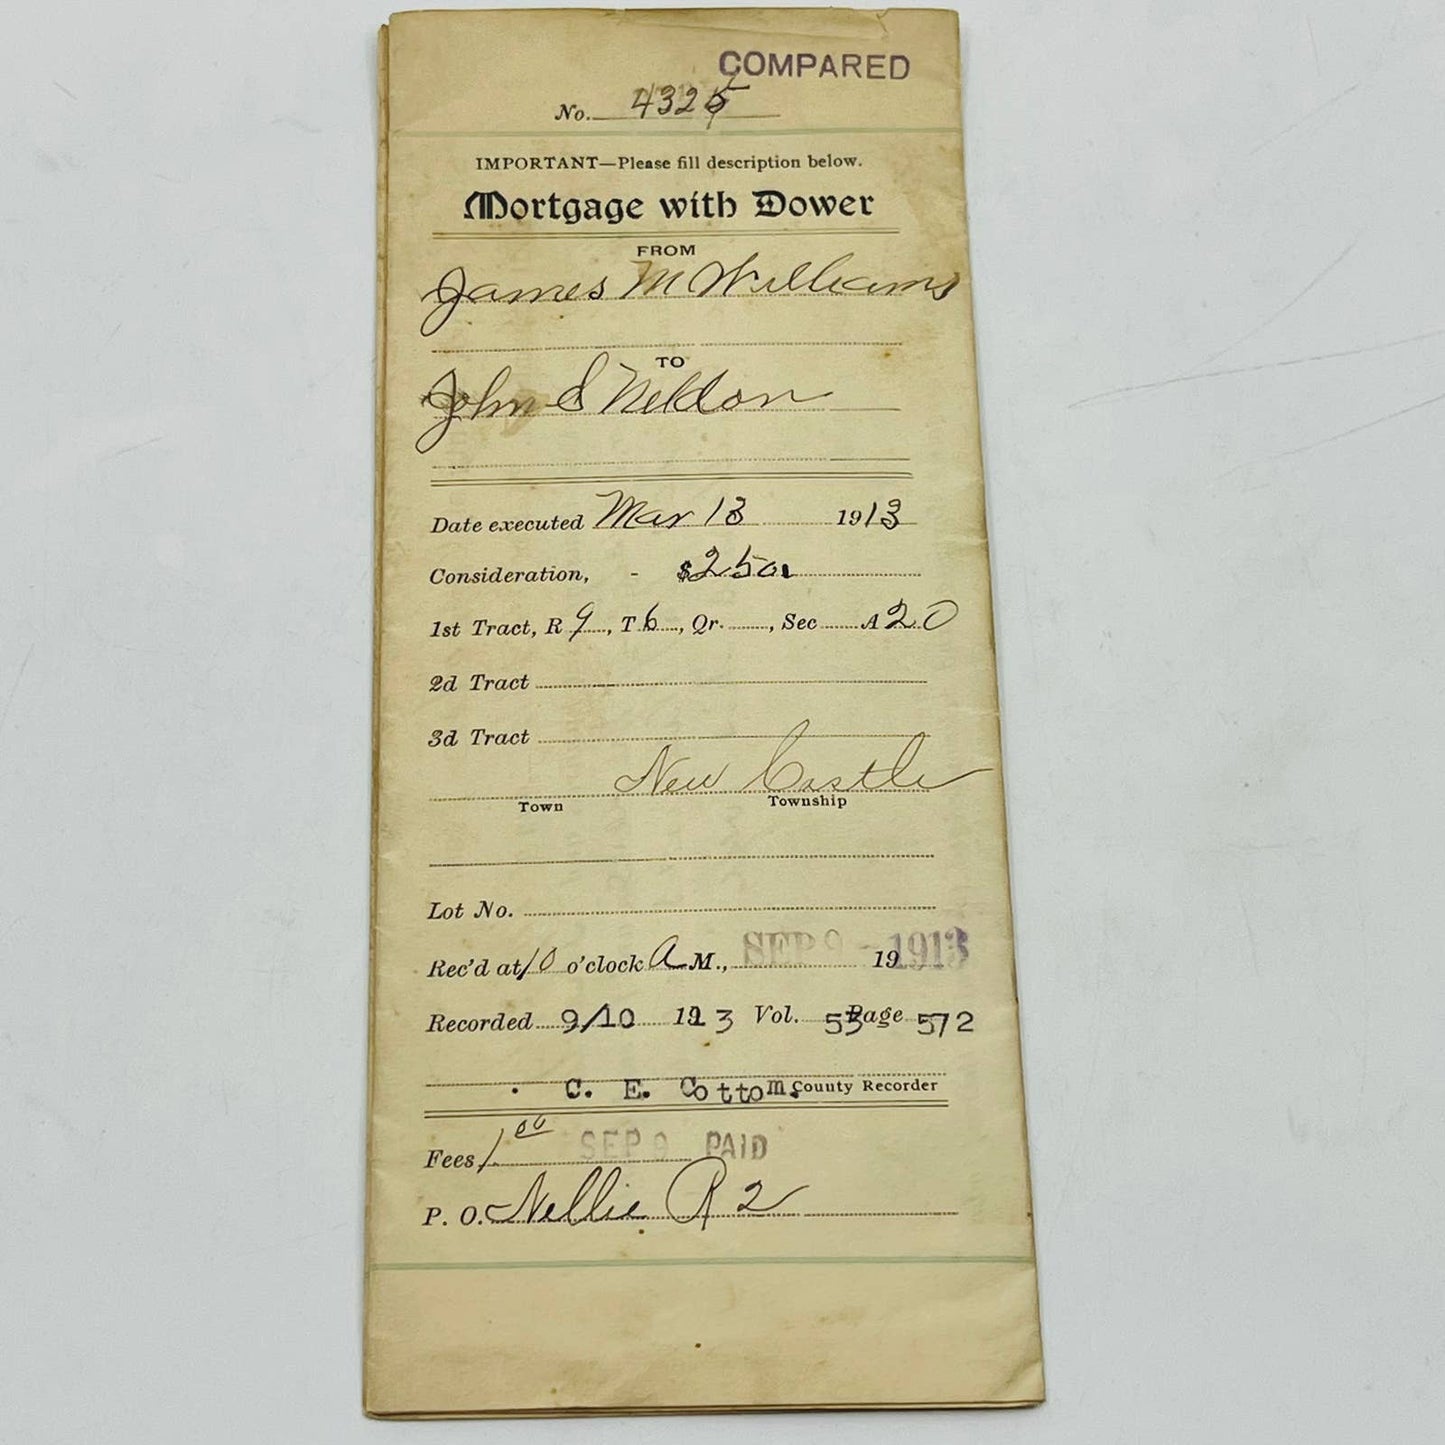 COMPARED
No. 4325
IMPORTANT—Please fill description below.
Mortgage with Dower
FROM
James M Williams
TO
John S Neldon
Date executed Mar 13 1913
Consideration, - $250
1st Tract, R 9, T 6, Qr. , Sec A 20
2d Tract
3d Tract
New Castle
Town Township
Lot No.
Rec'd at 10 o'clock A M., SEP 9 - 19 1913
Recorded 9/10 1913 Vol. 53 Page 572
C. E. Cottom. County Recorder
Fees 1.00 SEP 9 PAID
P. O. Nellie R 2